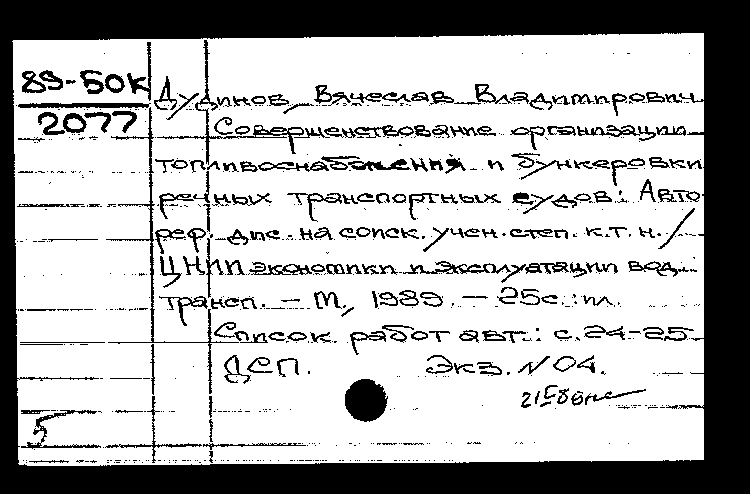 89-50К
2077
Дудинов, Вячеслав Владимирович
Совершенствование организации
топливоснабжения и бункеровки
речных транспортных судов: Авто-
реф. дис. на соиск. учен. степ. к.т.н. /
ЦНИИ экономики и эксплуатации вод.
трансп. – М., 1989. – 25с.: ил.
Список работ авт.: с. 24-25
ДСП. Экз. N 04.
5